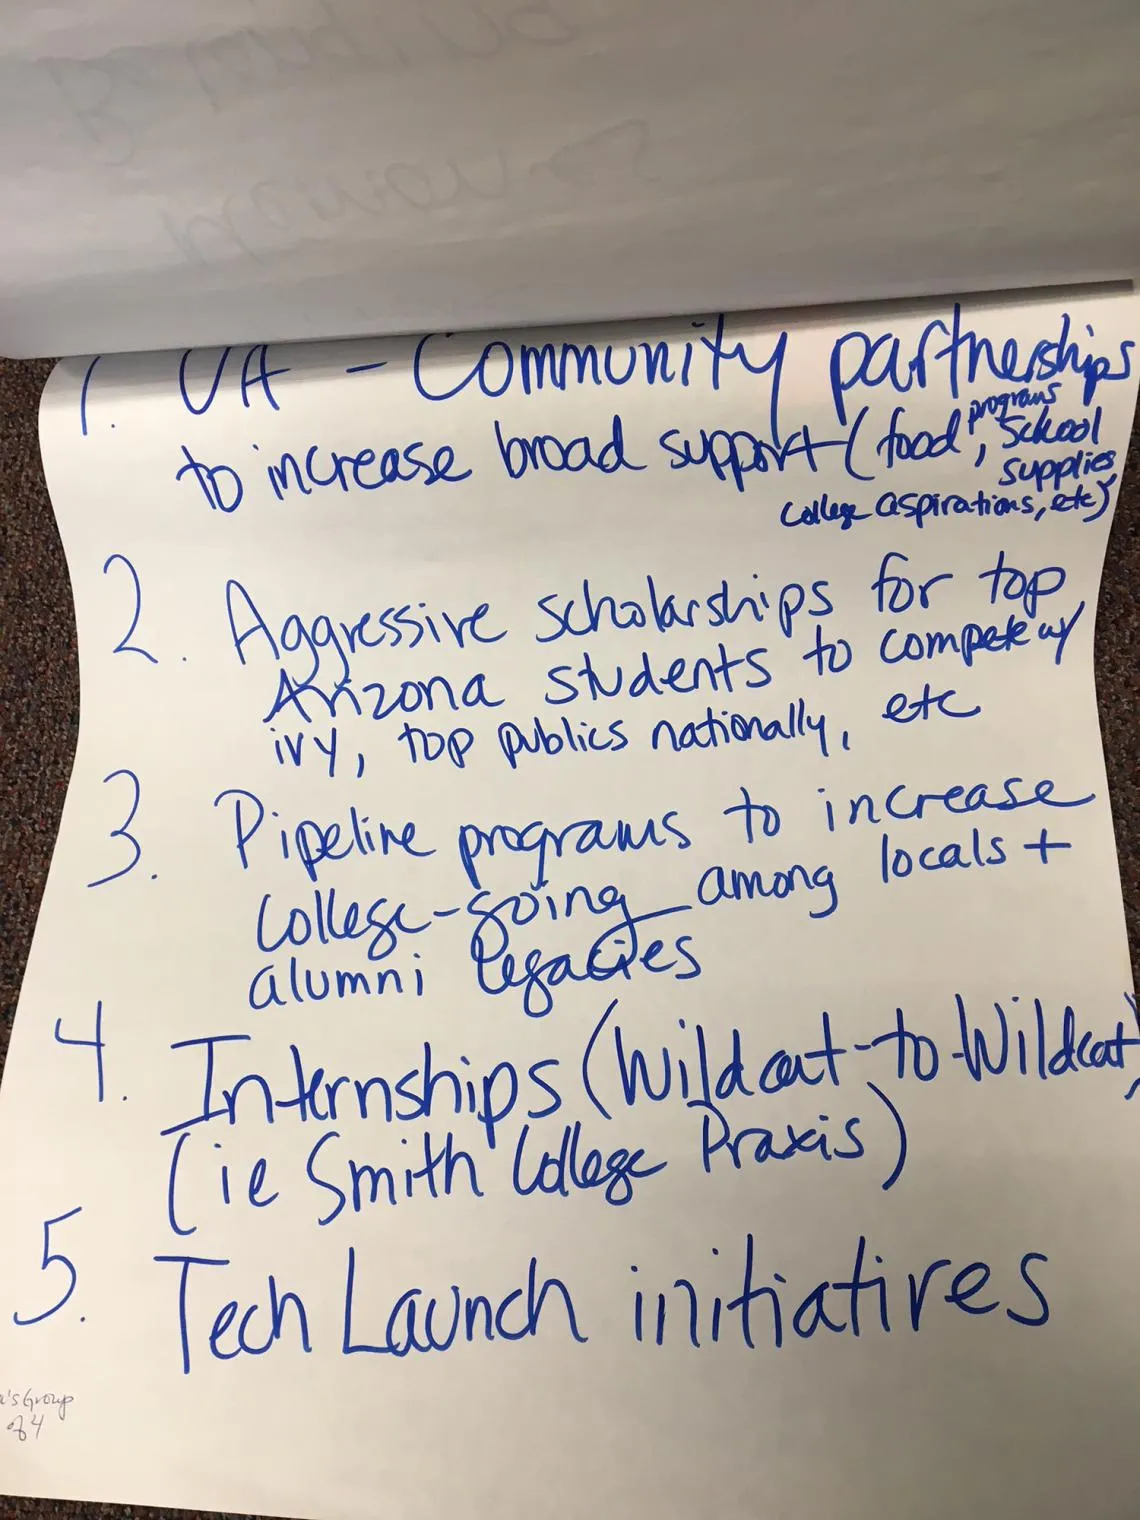 1. UA - Community partnerships
to increase broad support (food programs, school
supplies,
college aspirations, etc)
2. Aggressive scholarships for top
Arizona students to compete w/
ivy, top publics nationally, etc
3. Pipeline programs to increase
college-going among locals +
alumni legacies
4. Internships (Wildcat-to-Wildcat)
(ie Smith College Praxis)
5. Tech Launch initiatives
a's Group
of 4